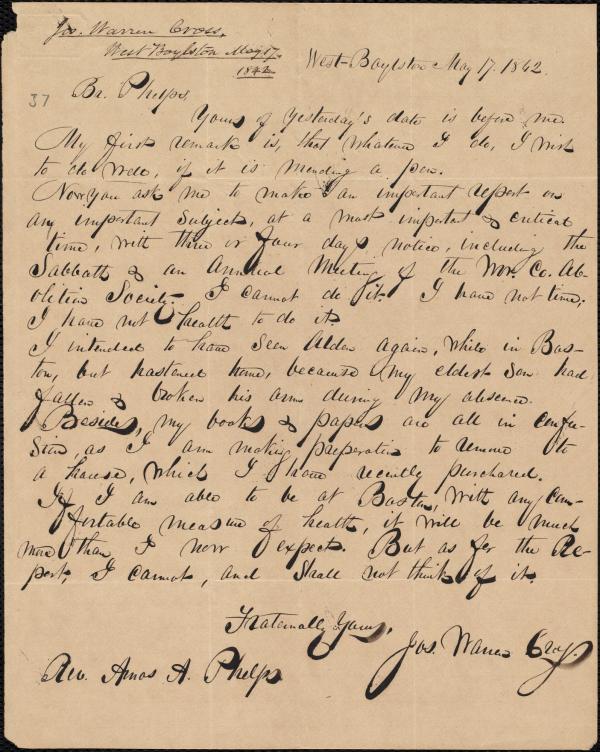 Jos. Warren Cross,
West Boylston May 17.
1842
West-Boylston May 17. 1842.
37
Br. Phelps,
Yours of yesterday's date is before me
My first remark is, that whatever I do, I wish
to do well, if it is mending a pen.
Now you ask me to make an important report on
any important subject, at a most important & critical
time, with three or four days notice, including the
Sabbath & an Annual Meeting of the Wor. Co. Ab-
olition Society. I cannot do it. I have not time;
I have not health to do it.
I intended to have seen Alden again, while in Bos-
ton, but hastened home, because my eldest son had
fallen & broken his arm during my absence.
Besides, my books & papers are all in confu-
sion, as I am making preparation to remove to
a house, which I have recently purchased.
If I am able to be at Boston, with any com-
fortable measure of health, it will be much
more than I now expect. But as for the Re-
port, I cannot, and shall not think of it.
Fraternally Yours,
Jos. Warren Cross.
Rev. Amos A. Phelps